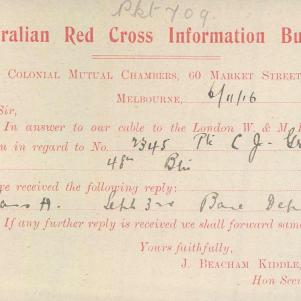 Pkt 709.
ralian Red Cross Information Bu
Colonial Mutual Chambers, 60 Market Street
Melbourne, 6/11/16
Sir,
In answer to our cable to the London W. & M.
u in regard to No. 2345 Pte C J.
48th Btn
ve received the following reply:
Sept 3rd Base Dep
If any further reply is received we shall forward same
Yours faithfully,
J. BEACHAM KIDDLE,
Hon Sec